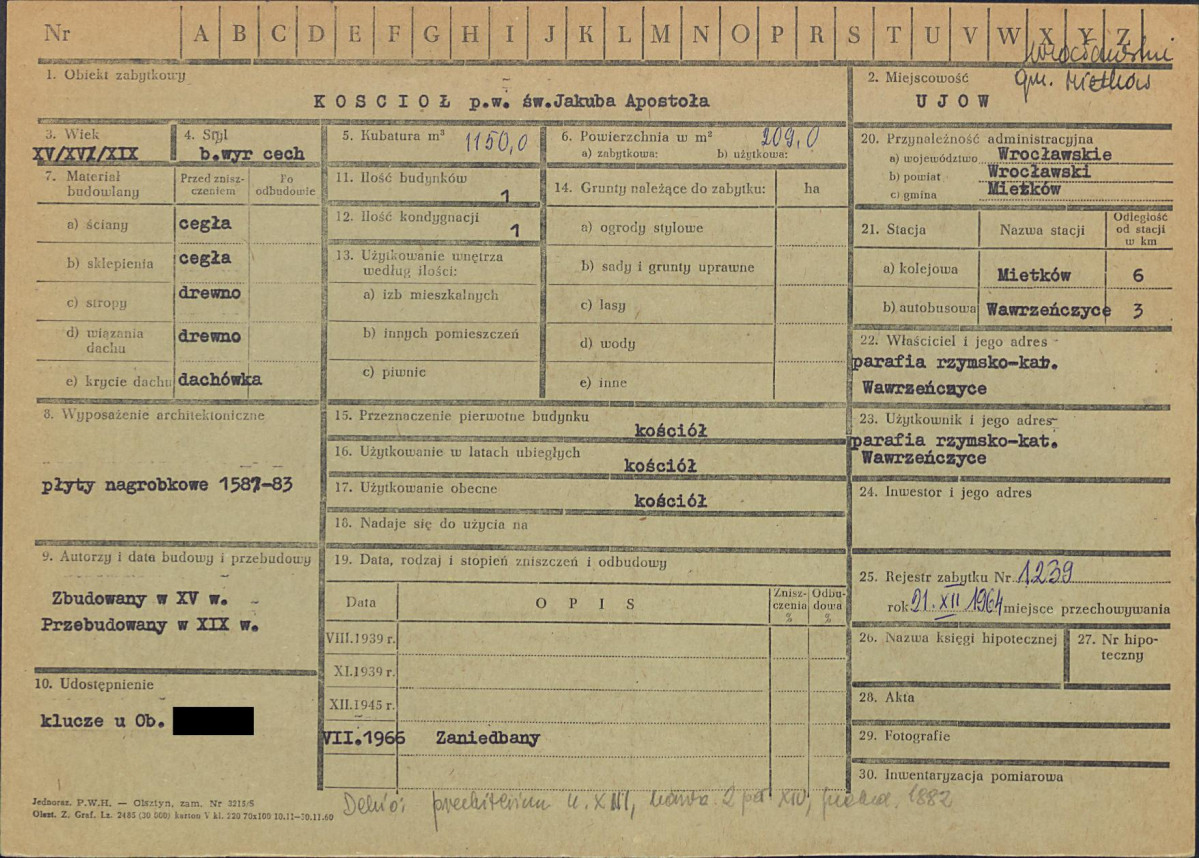 Nr A B C D E F G H I J K L M N O P R S T U V W X Y Z
gm. Mietków
1. Obiekt zabytkowy
KOSCIOŁ p.w. św.Jakuba Apostoła
2. Miejscowość
UJOW
3. Wiek
XV/XVI/XIX
4. Styl
b.wyr cech
5. Kubatura m³ 1150,0
6. Powierzchnia w m² 209,0
a) zabytkowa: b) użytkowa:
7. Materiał budowlany
Przed zniszczeniem
Po odbudowie
a) ściany cegła
b) sklepienia cegła
c) stropy drewno
d) wiązania dachu drewno
e) krycie dachu dachówka
8. Wyposażenie architektoniczne
płyty nagrobkowe 1587-83
9. Autorzy i data budowy i przebudowy
Zbudowany w XV w.
Przebudowany w XIX w.
10. Udostępnienie
klucze u Ob.
11. Ilość budynków
1
12. Ilość kondygnacji
1
13. Użytkowanie wnętrza
według ilości:
a) izb mieszkalnych
b) innych pomieszczeń
c) piwnic
14. Grunty należące do zabytku: ha
a) ogrody stylowe
b) sady i grunty uprawne
c) lasy
d) wody
e) inne
15. Przeznaczenie pierwotne budynku
kościół
16. Użytkowanie w latach ubiegłych
kościół
17. Użytkowanie obecne
kościół
18. Nadaje się do użycia na
19. Data, rodzaj i stopień zniszczeń i odbudowy
Data O P I S Zniszczenia % Odbudowa %
VIII.1939 r.
XI.1939 r.
XII.1945 r.
VII.1966 Zaniedbany
20. Przynależność administracyjna
a) województwo Wrocławskie
b) powiat Wrocławski
c) gmina Mietków
21. Stacja Nazwa stacji Odległość od stacji w km
a) kolejowa Mietków 6
b) autobusowa Wawrzeńczyce 3
22. Właściciel i jego adres
parafia rzymsko-kat.
Wawrzeńczyce
23. Użytkownik i jego adres
parafia rzymsko-kat.
Wawrzeńczyce
24. Inwestor i jego adres
25. Rejestr zabytku Nr. 1239
rok 21.XII 1964 miejsce przechowywania
26. Nazwa księgi hipotecznej
27. Nr hipoteczny
28. Akta
29. Fotografie
30. Inwentaryzacja pomiarowa
Jednoraz. P.W.H. — Olsztyn, zam. Nr 3215/S
Olszt. Z. Graf. Lz. 2485 (30 000) karton V kl. 220 70x100 10.11—30.11.60
Dehio: prezbiterium k. XIII, nawa 2 poł XIV, 1882